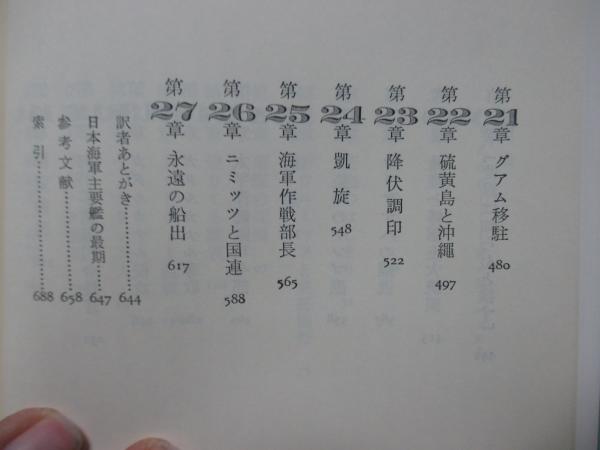 第21章 グアム移駐 480
第22章 硫黄島と沖縄 497
第23章 降伏調印 522
第24章 凱旋 548
第25章 海軍作戦部長 565
第26章 ニミッツと国連 588
第27章 永遠の船出 617
訳者あとがき……………644
日本海軍主要艦の最期……647
参考文献……………658
索引……………688